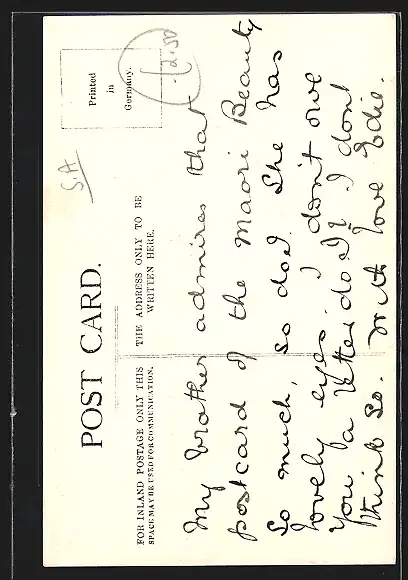 POST CARD.
FOR INLAND POSTAGE ONLY THIS
SPACE MAY BE USED FOR COMMUNICATION.
THE ADDRESS ONLY TO BE
WRITTEN HERE.
Printed
in
Germany.
S.A
12.50
My brother admires that
postcard of the Maori Beauty
so much, so do I. She has
lovely eyes. I don't owe
you a letter do I? I dont
think so. With love Edie.